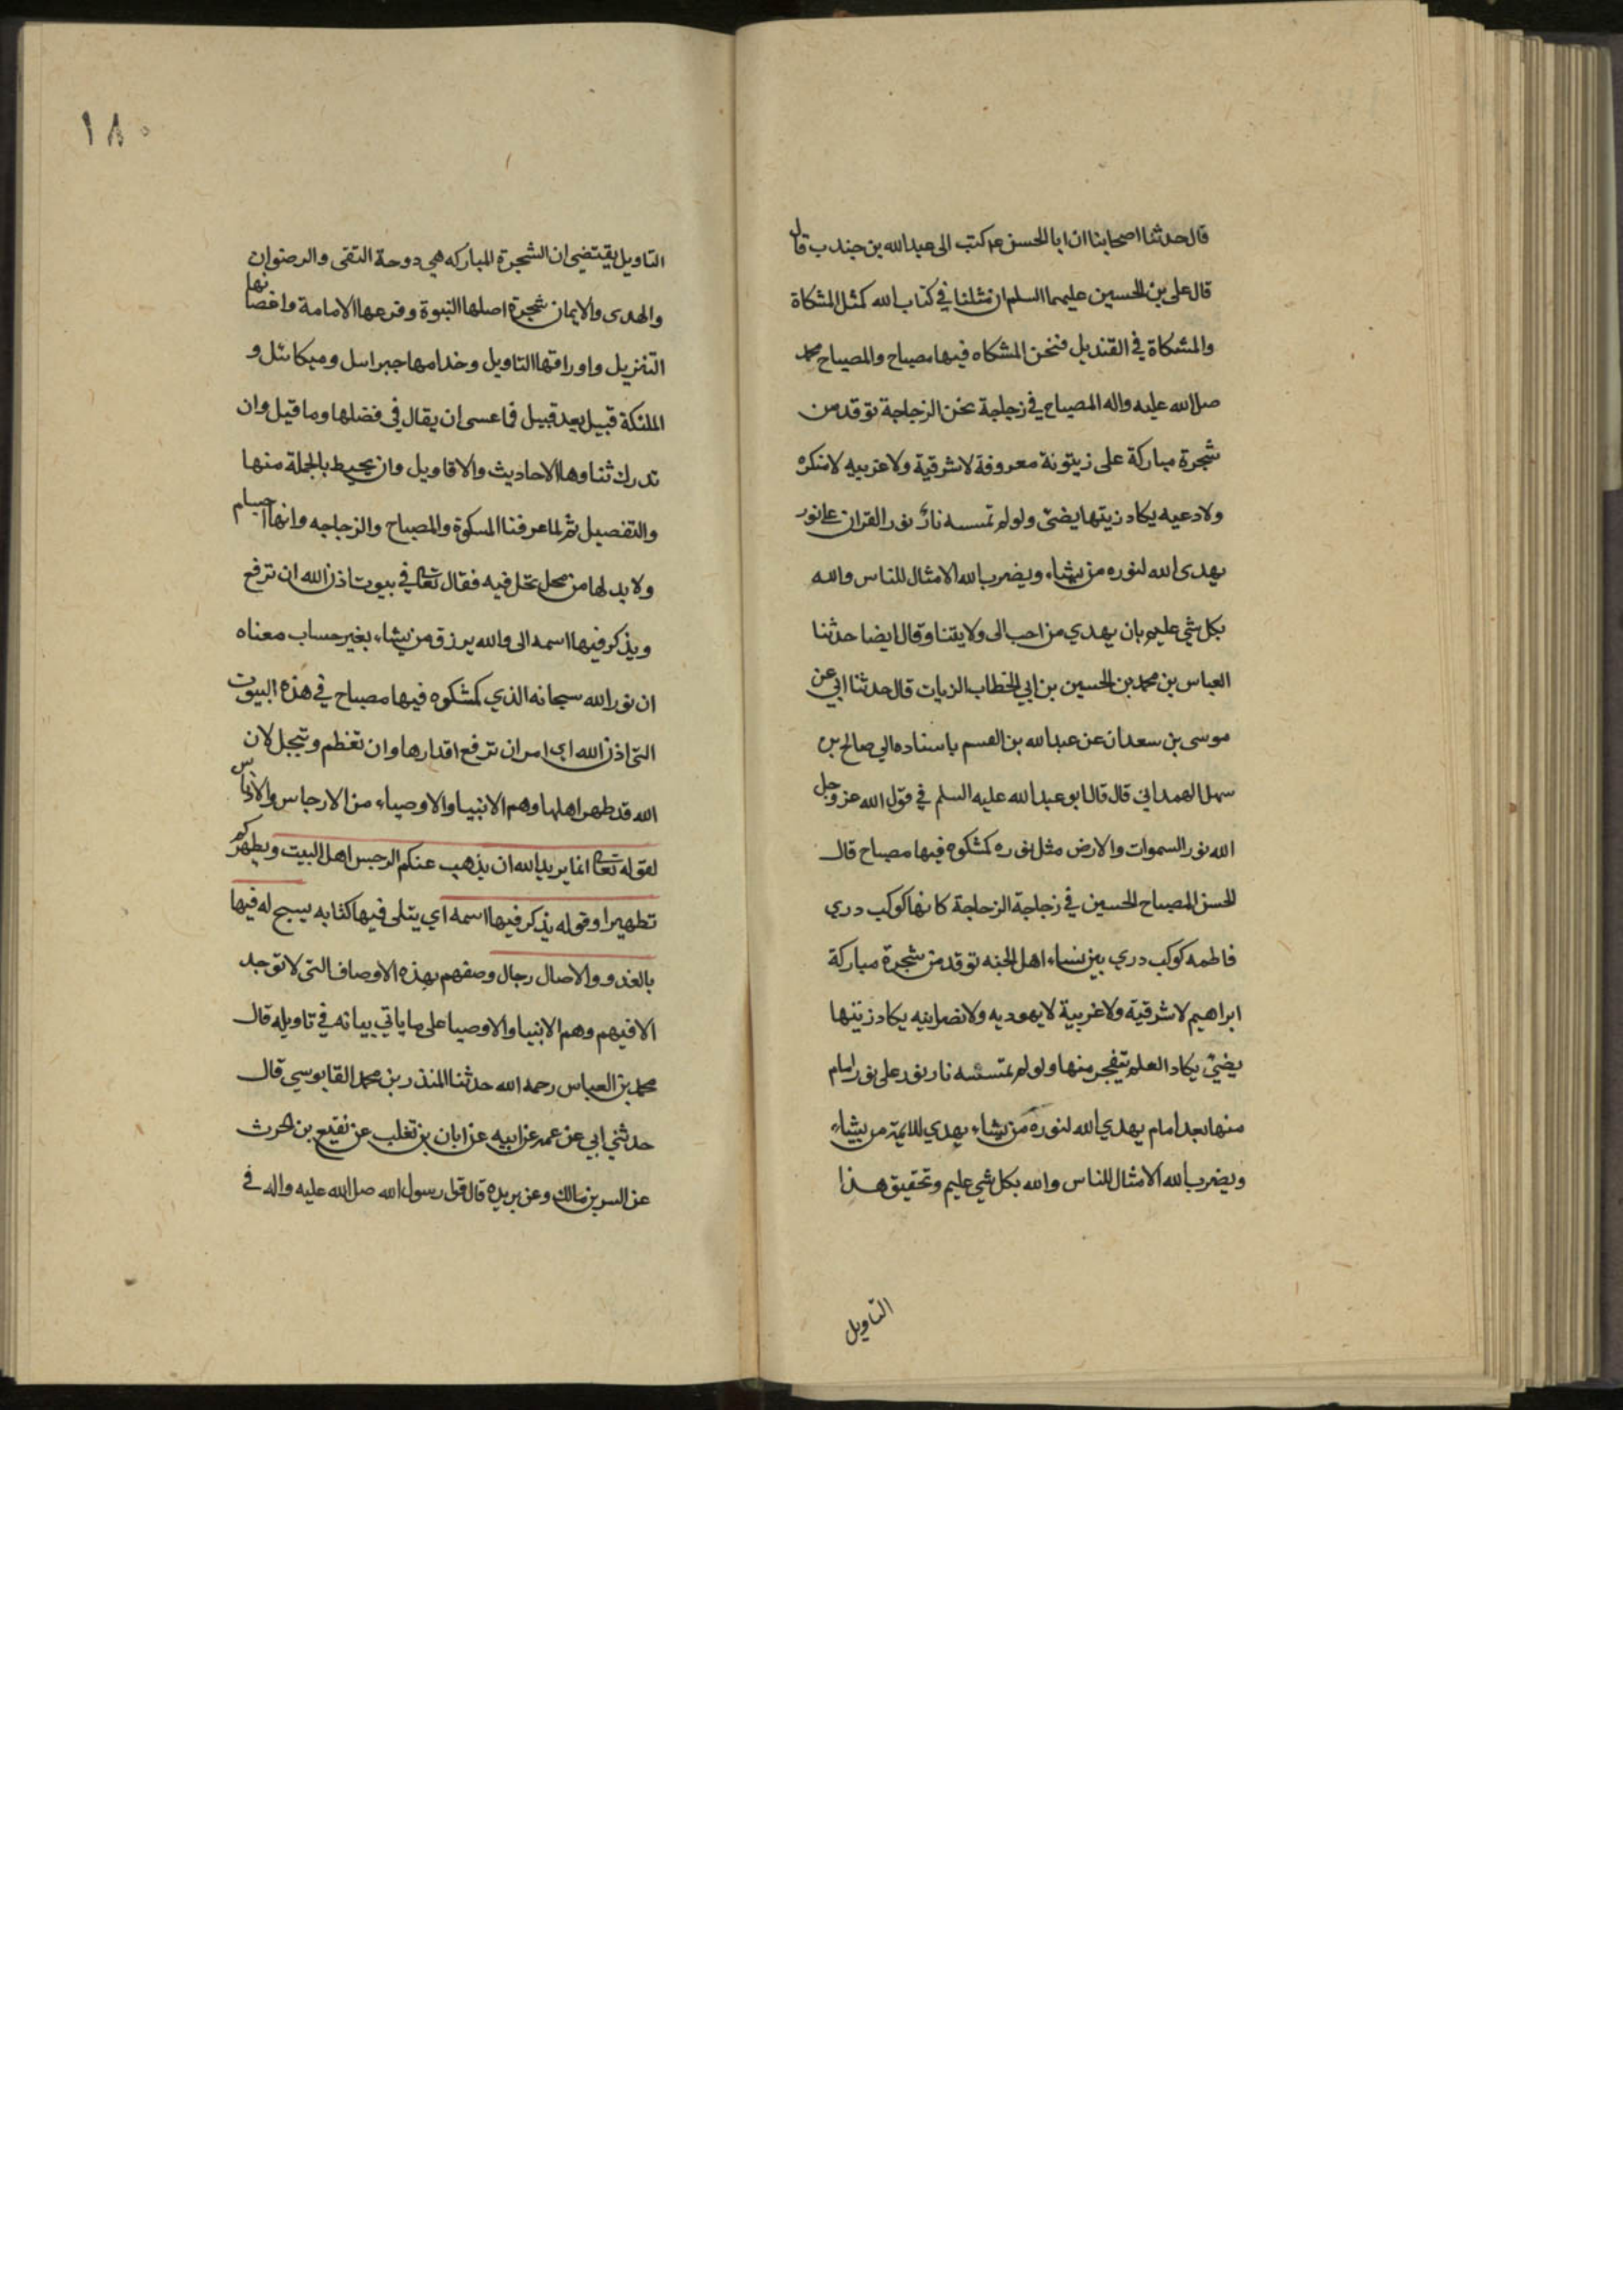 قال حدثنا اصحابنا ان ابا الحسن ع م كتب الى عبدالله بن جندب قال
قال على بن الحسين عليهما السلم ان مثلنا في كتاب الله كمثل المشكاة
والمشكاة في القنديل فنحن المشكاه فيها مصباح والمصباح محمد
صلى الله عليه واله المصباح في زجاجة نحن الزجاجة توقد من
شجرة مباركة على زيتونة معروفة لا شرقية ولا غربيه لا منكره
ولا دعيه يكاد زيتها يضئ ولو لم تمسسه نار نور القران على نور
يهدى الله لنوره من يشاء ويضرب الله الامثال للناس والله
بكل شي عليم بان يهدي من احب الى ولايتنا وقال ايضا حدثنا
العباس بن محمد بن الحسين بن ابي الخطاب الزيات قال حدثنا ابي عن
موسى بن سعدان عن عبدالله بن القسم باسناده الي صالح بن
سهل الهمداني قال قال ابو عبدالله عليه السلم في قول الله عز وجل
الله نور السموات والارض مثل نوره كمشكوه فيها مصباح قال
الحسن المصباح الحسين في زجاجة الزجاجة كانها كوكب دري
فاطمه كوكب دري بين نساء اهل الجنه توقد من شجرة مباركة
ابراهيم لا شرقية ولا غربية لا يهوديه ولا نصرانيه يكاد زيتها
يضئ يكاد العلم يتفجر منها ولو لم تمسسه نار نور على نور امام
منها بعد امام يهدي الله لنوره من يشاء يهدي للايمة من يشاء
ويضرب الله الامثال للناس والله بكل شي عليم وتحقيق هذا
التاويل
١٨٠
التاويل يقتضي ان الشجرة المباركه هي دوحة التقى والرضوان
والهدى والايمان شجرة اصلها النبوة وفرعها الامامة واغصانها
التنزيل واوراقها التاويل وخدامها جبراىيل وميكائل و
الملئكة قبيل بعد قبيل فما عسى ان يقال في فضلها وما قيل وان
تدرك ثناوها الاحاديث والاقاويل وان يحيط بالجملة منها
والتفصيل ثم لما عرفنا المسكوة والمصباح والزجاجه وانها اجسام
ولا بد لها من محل تحل فيه فقال تعا في بيوت اذن الله ان ترفع
ويذكر فيها اسمه الى والله يرزق من يشاء بغير حساب معناه
ان نور الله سبحانه الذي كمشكوه فيها مصباح في هذه البيوت
التي اذن الله اى امر ان ترفع اقدارها وان تعظم وتبجل لان
الله قد طهر اهلها وهم الانبيا والاوصياء من الارجاس والادناس
لقوله تعا انما يريد الله ان يذهب عنكم الرجس اهل البيت ويطهركم
تطهيرا وقوله يذكر فيها اسمه اي يتلى فيها كتابه يسبح له فيها
بالغدو والاصال رجال وصفهم بهذه الاوصاف التي لا توجد
الا فيهم وهم الانبيا والاوصيا على ما ياتي بيانه في تاويله قال
محمد بن العباس رحمه الله حدثنا المنذر بن محمد القابوسي قال
حدثني ابي عن عمه عن ابيه عن ابان بن تغلب عن نفيع بن الحرث
عن انس بن مالك وعن بريده قال قرا رسول الله صلى الله عليه واله في